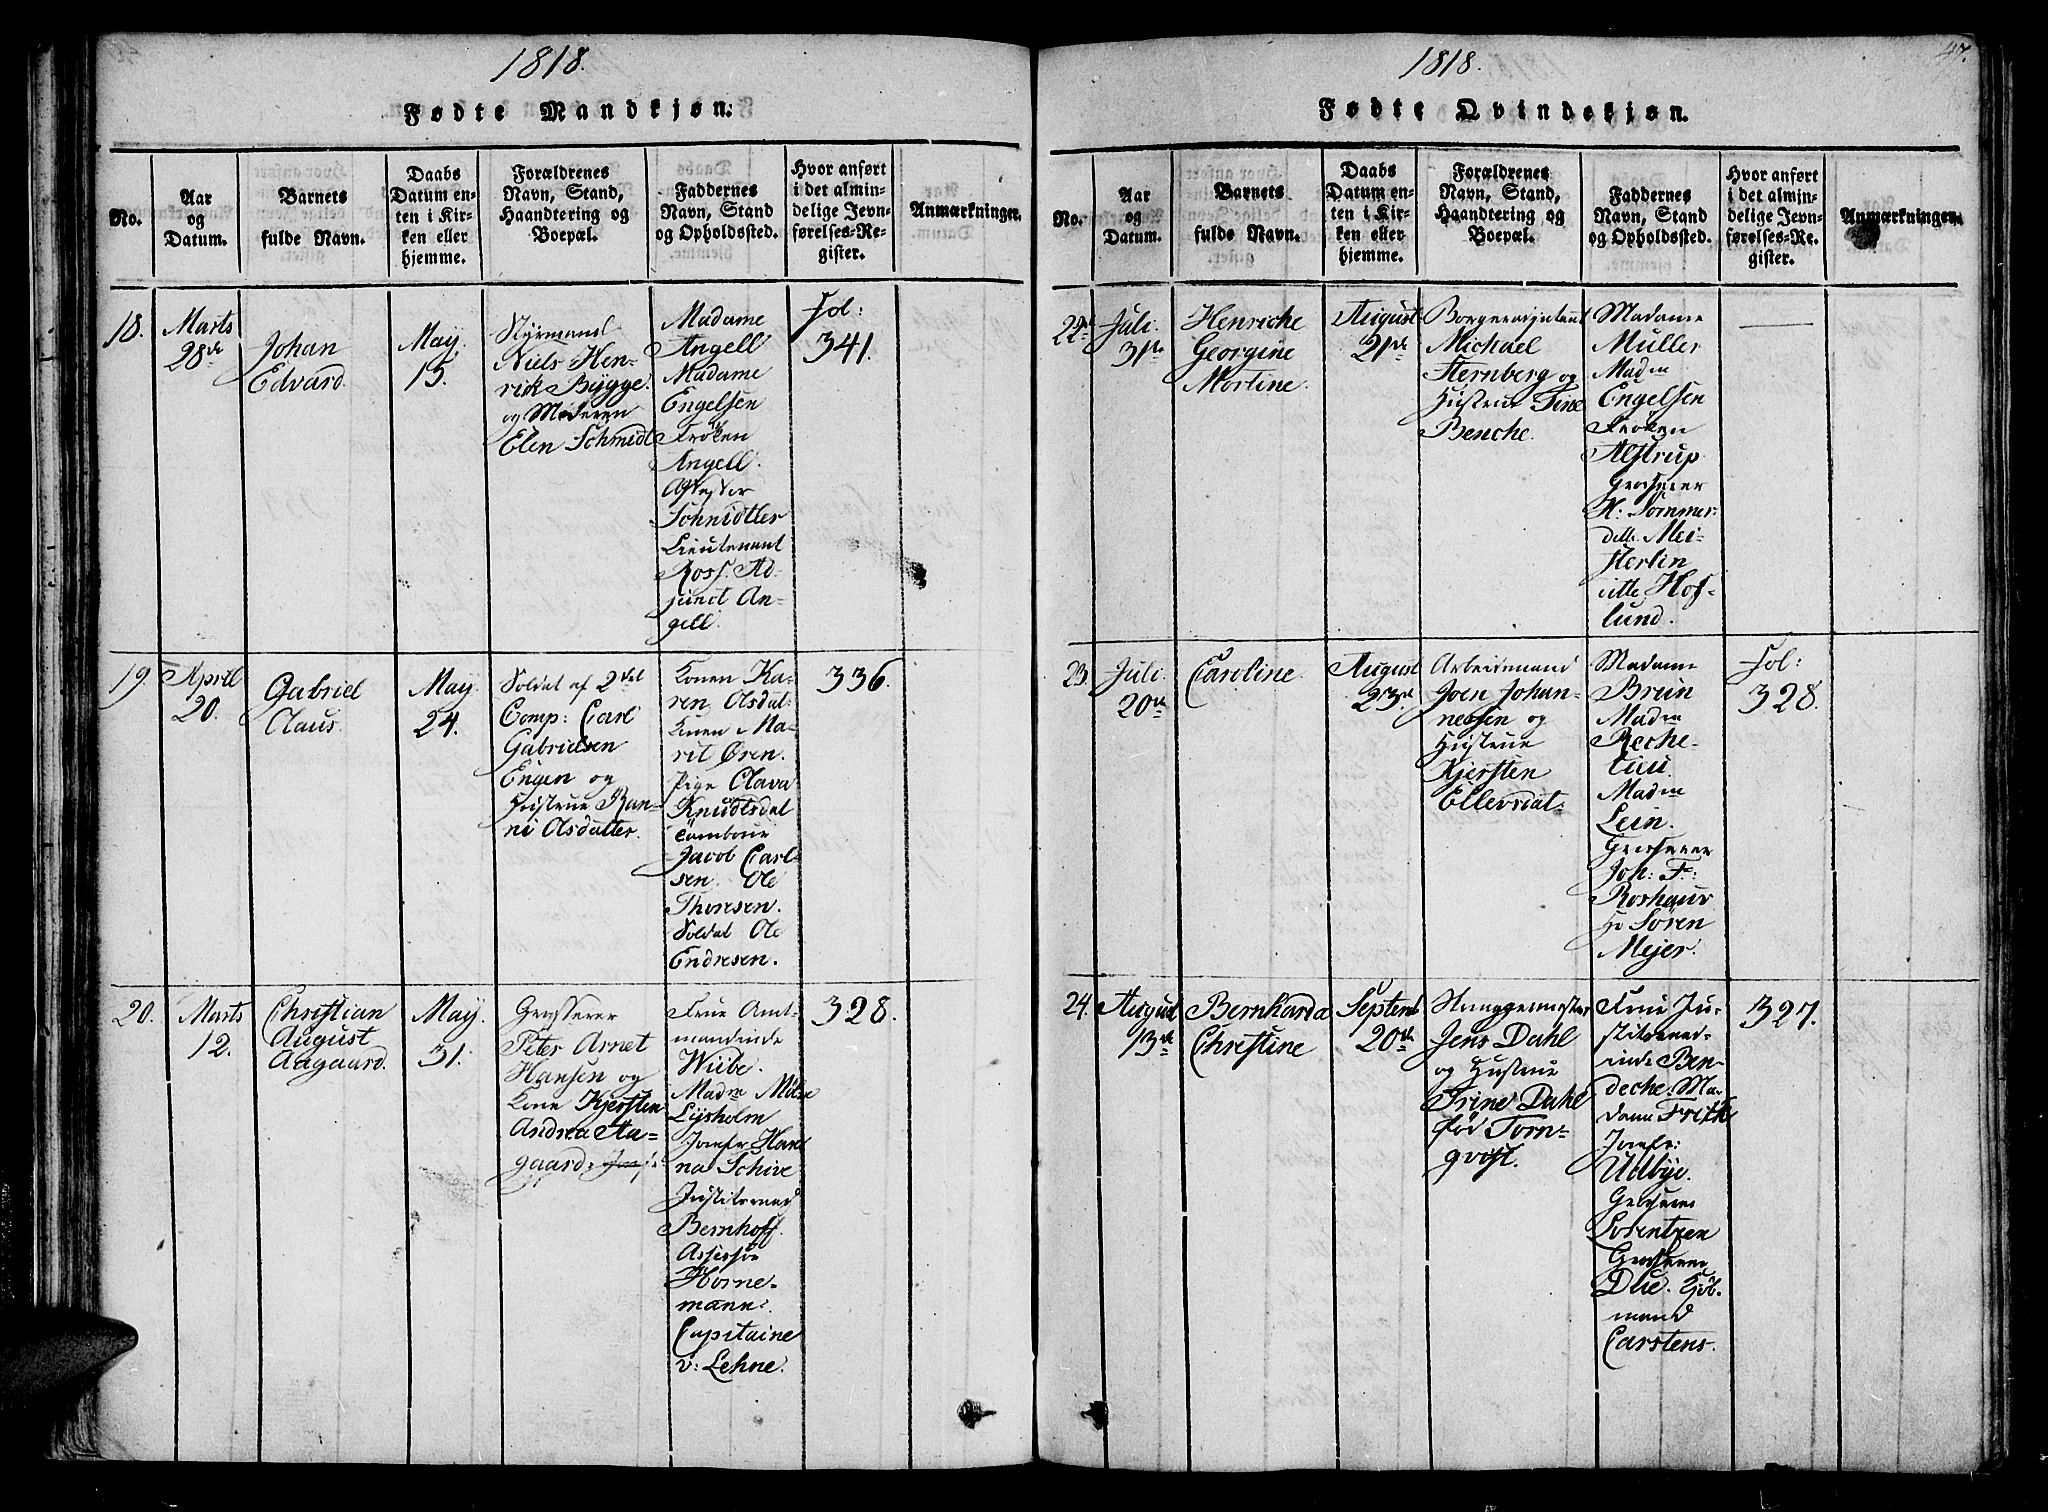 1818.
Fødte Mandkjøn.
No.
Aar
og
Datum.
Barnets
fulde Navn.
Daabs
Datum en-
ten i Kir-
ken eller
hjemme.
Forældrenes
Navn, Stand,
Haandtering og
Boepæl.
Faddernes
Navn, Stand
og Opholdssted.
Hvor anført
i det almin-
delige Jevn-
førelses-Re-
gister.
Anmærkninger.
18.
Marts
28de
Johan
Edvard.
May
15.
Styrmand
Niels Hen-
rik Bygge.
og Moderen
Elen Schmidt
Madame
Angell
Madame
Engelsen
Frøken
Angell.
Schnidtler
Lieutenant
Ross. Ad-
junct An-
gell.
Fol:
341.
19.
April
20.
Gabriel
Claus.
May
24.
Soldat af 2det
Comp: Carl
Gabrielsen
Engen og
Hustrue Ran-
ni Olsdatter.
Konen Ka-
ren Olsdat:
Konen Ma-
rit Øren.
Pige Olava
Knudtsdat
Tambour
Jacob Carl-
sen. Ole
Thoresen.
Soldat Ole
Endresen.
336.
20.
Marts
12.
Christian
August
Aagaard.
May
31.
Grosserer
Peter Arnet
Hansen og
Kone Kjersten
Andrea Aa-
gaard.
Frue Amt-
mandinde
Wiibe.
Madm Möse
Lysholm
Jomfr Han
na Schive
Justitsraad
Bernhoff.
Assessor
Horne-
mann.
Capitaine
v: Lehne.
328.
1818.
47.
Fødte Qvindekjøn.
No.
Aar
og
Datum.
Barnets
fulde Navn.
Daabs
Datum en-
ten i Kir-
ken eller
hjemme.
Forældrenes
Navn, Stand,
Haandtering og
Boepæl.
Faddernes
Navn, Stand
og Opholdssted.
Hvor anført
i det almin-
delige Jevn-
førelses-Re-
gister.
Anmærkninger.
22.
Juli.
31te
Henriche
Georgine
Mortine.
August
21de
Borgeradjutant
Michael
Sternberg og
Hustrue Tine
Benche.
Madame
Müller
Madm
Engelsen
Frøken
Alstrup
Grosserer
H: Sommer:
ditto Mei-
sterlin
ditto Hof-
lund.
23.
Juli.
20de
Caroline.
August
23de
Arbeidsmand
Joen Johan-
nessen og
Hustrue
Kjersten
Ellevsdat:
Madame
Brun
Madm
Reche-
Madm
Lein.
Grosserer
Joh: F:
Roshauw
Hr Søren
Mejer.
Fol:
328.
24.
August
13de
Bernharda
Christine
Septemb
20de
Jens Dahl
og Hustrue
Trine Dahl
fød Torn-
qvist.
Frue Ju-
stitsraad-
inde Ben-
deche. Ma-
dame Frith
Jomfr:
Udbye.
Lorentzen
Grosserer
Due. Kjøb-
mand
Carstens.
327.